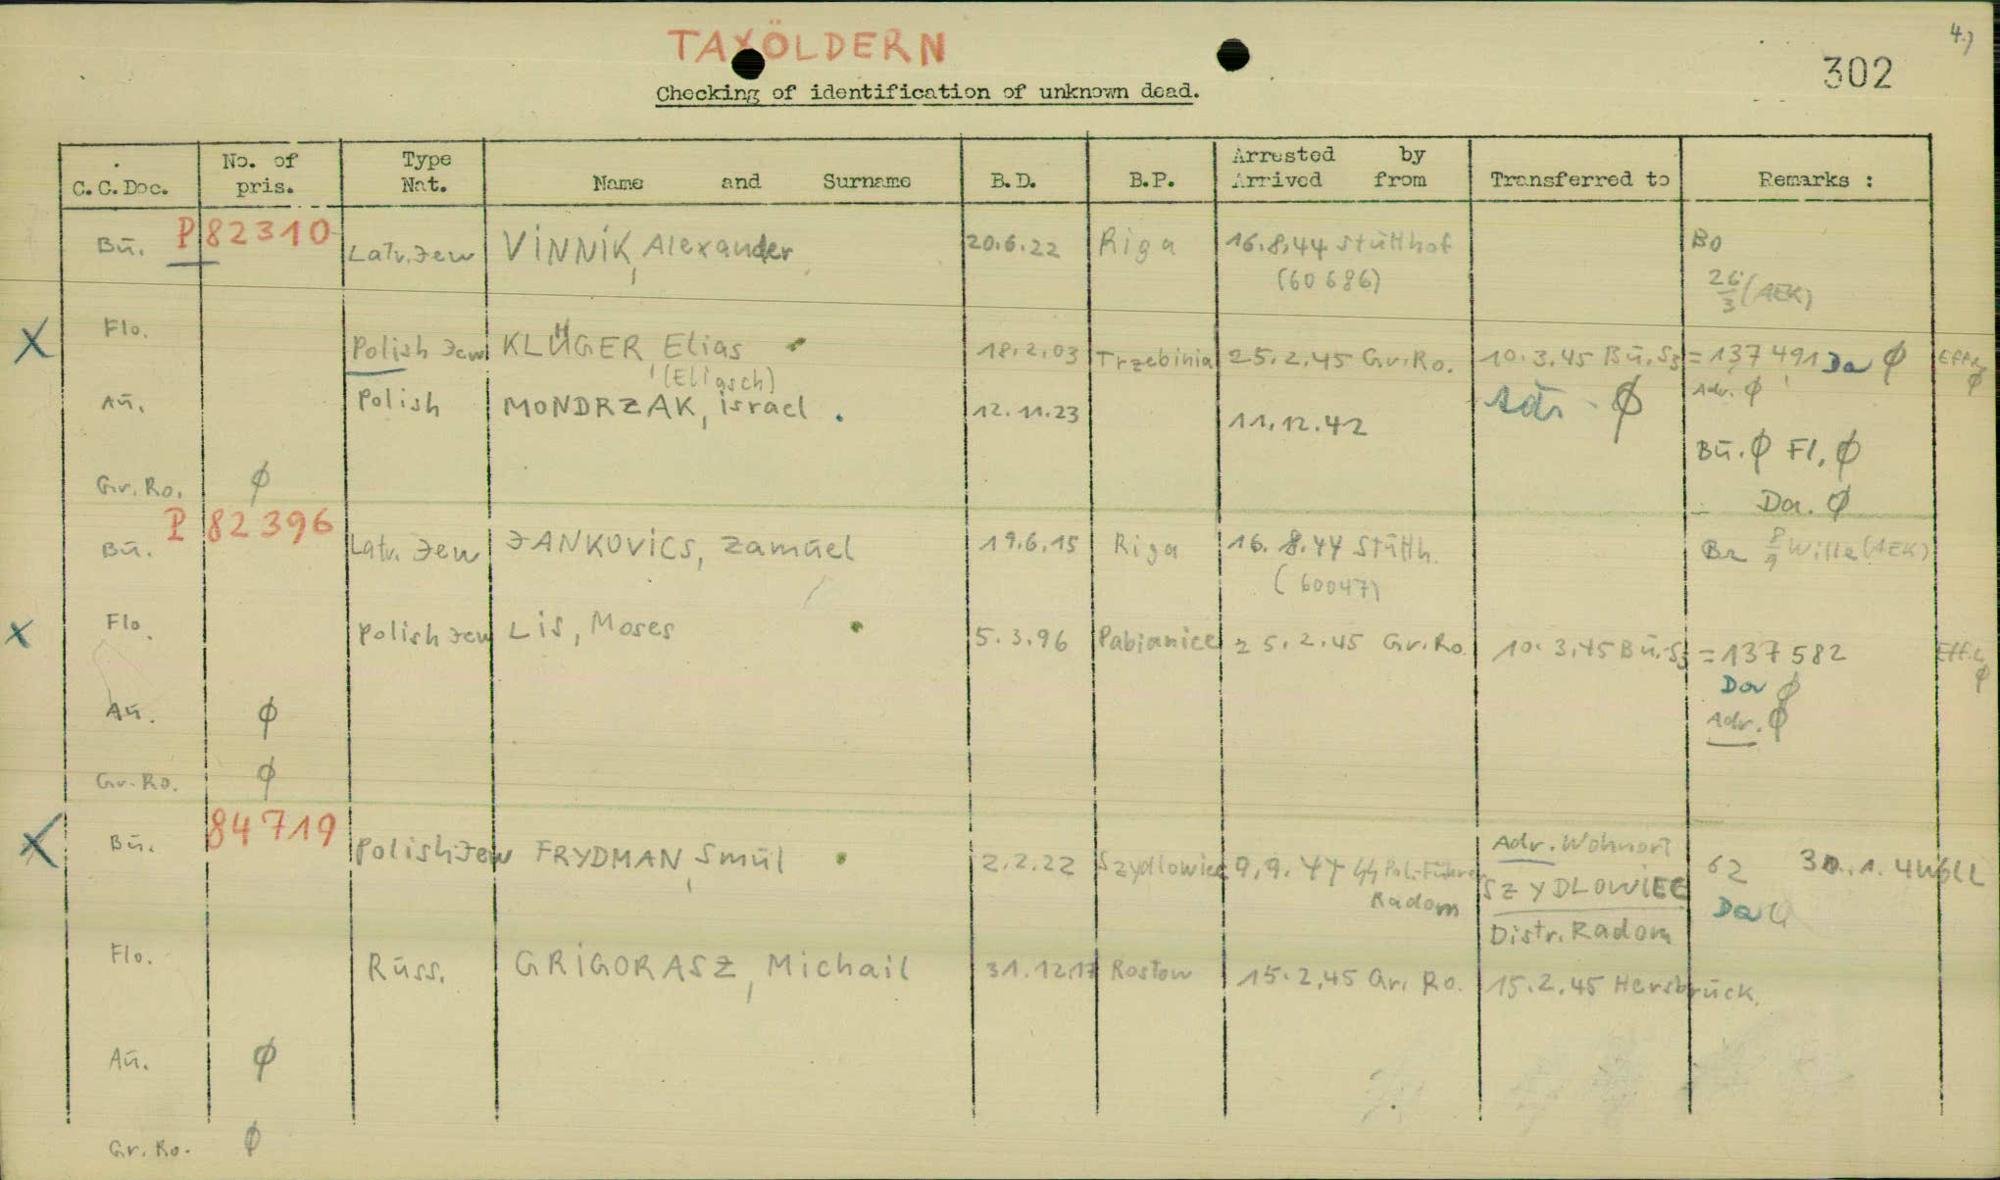 4.)
TAXÖLDERN
302
Checking of identification of unknown dead.
C.C.Doc. No. of pris. Type Nat. Name and Surname B.D. B.P. Arrested by Arrived from Transferred to Remarks :
Bū. P 82310 Latv. Jew VINNIK, Alexander 20.6.22 Riga 16.8.44 Stutthof Bo
(60686) 26/3 (AEK)
Flo. X Polish Jew KLÜGER, Elias 18.2.03 Trzebinia 25.2.45 Gr.Ro. 10.3.45 Bū. S3 = 137491 Da Ø Eff. Ø
(Eliasch) Adr. Ø
Aū. Polish MONDRZAK, israel. 12.11.23 11.12.42 Adr. Ø
Bū. Ø Fl. Ø
Gr. Ro. Ø Da. Ø
Bū. P 82396 Latv. Jew JANKOVICS, Zamūel 19.6.15 Riga 16.8.44 Stūtth. 8/9 Wille (AEK)
(60047)
X Flo. Polish Jew LIS, Moses 5.3.96 Pabianice 25.2.45 Gr.Ro. 10.3.45 Bū.-S3 = 137582 Eff. Ø
Da Ø
Aū. Ø Adr. Ø
Gr. Ro. Ø
X Bū. 84719 Polish Jew FRYDMAN, Smūl 2.2.22 Szydlowiec 9.9.44 SS Pol.-Führer Radom Adr. Wohnort
SZYDLOWIEC 62
Distr. Radom Da
Flo. Rūss. GRIGORASZ, Michail 31.12.17 Rostow 15.2.45 Gr. Ro. 15.2.45 Hersbrück.
Aū. Ø
Gr. Ro. Ø